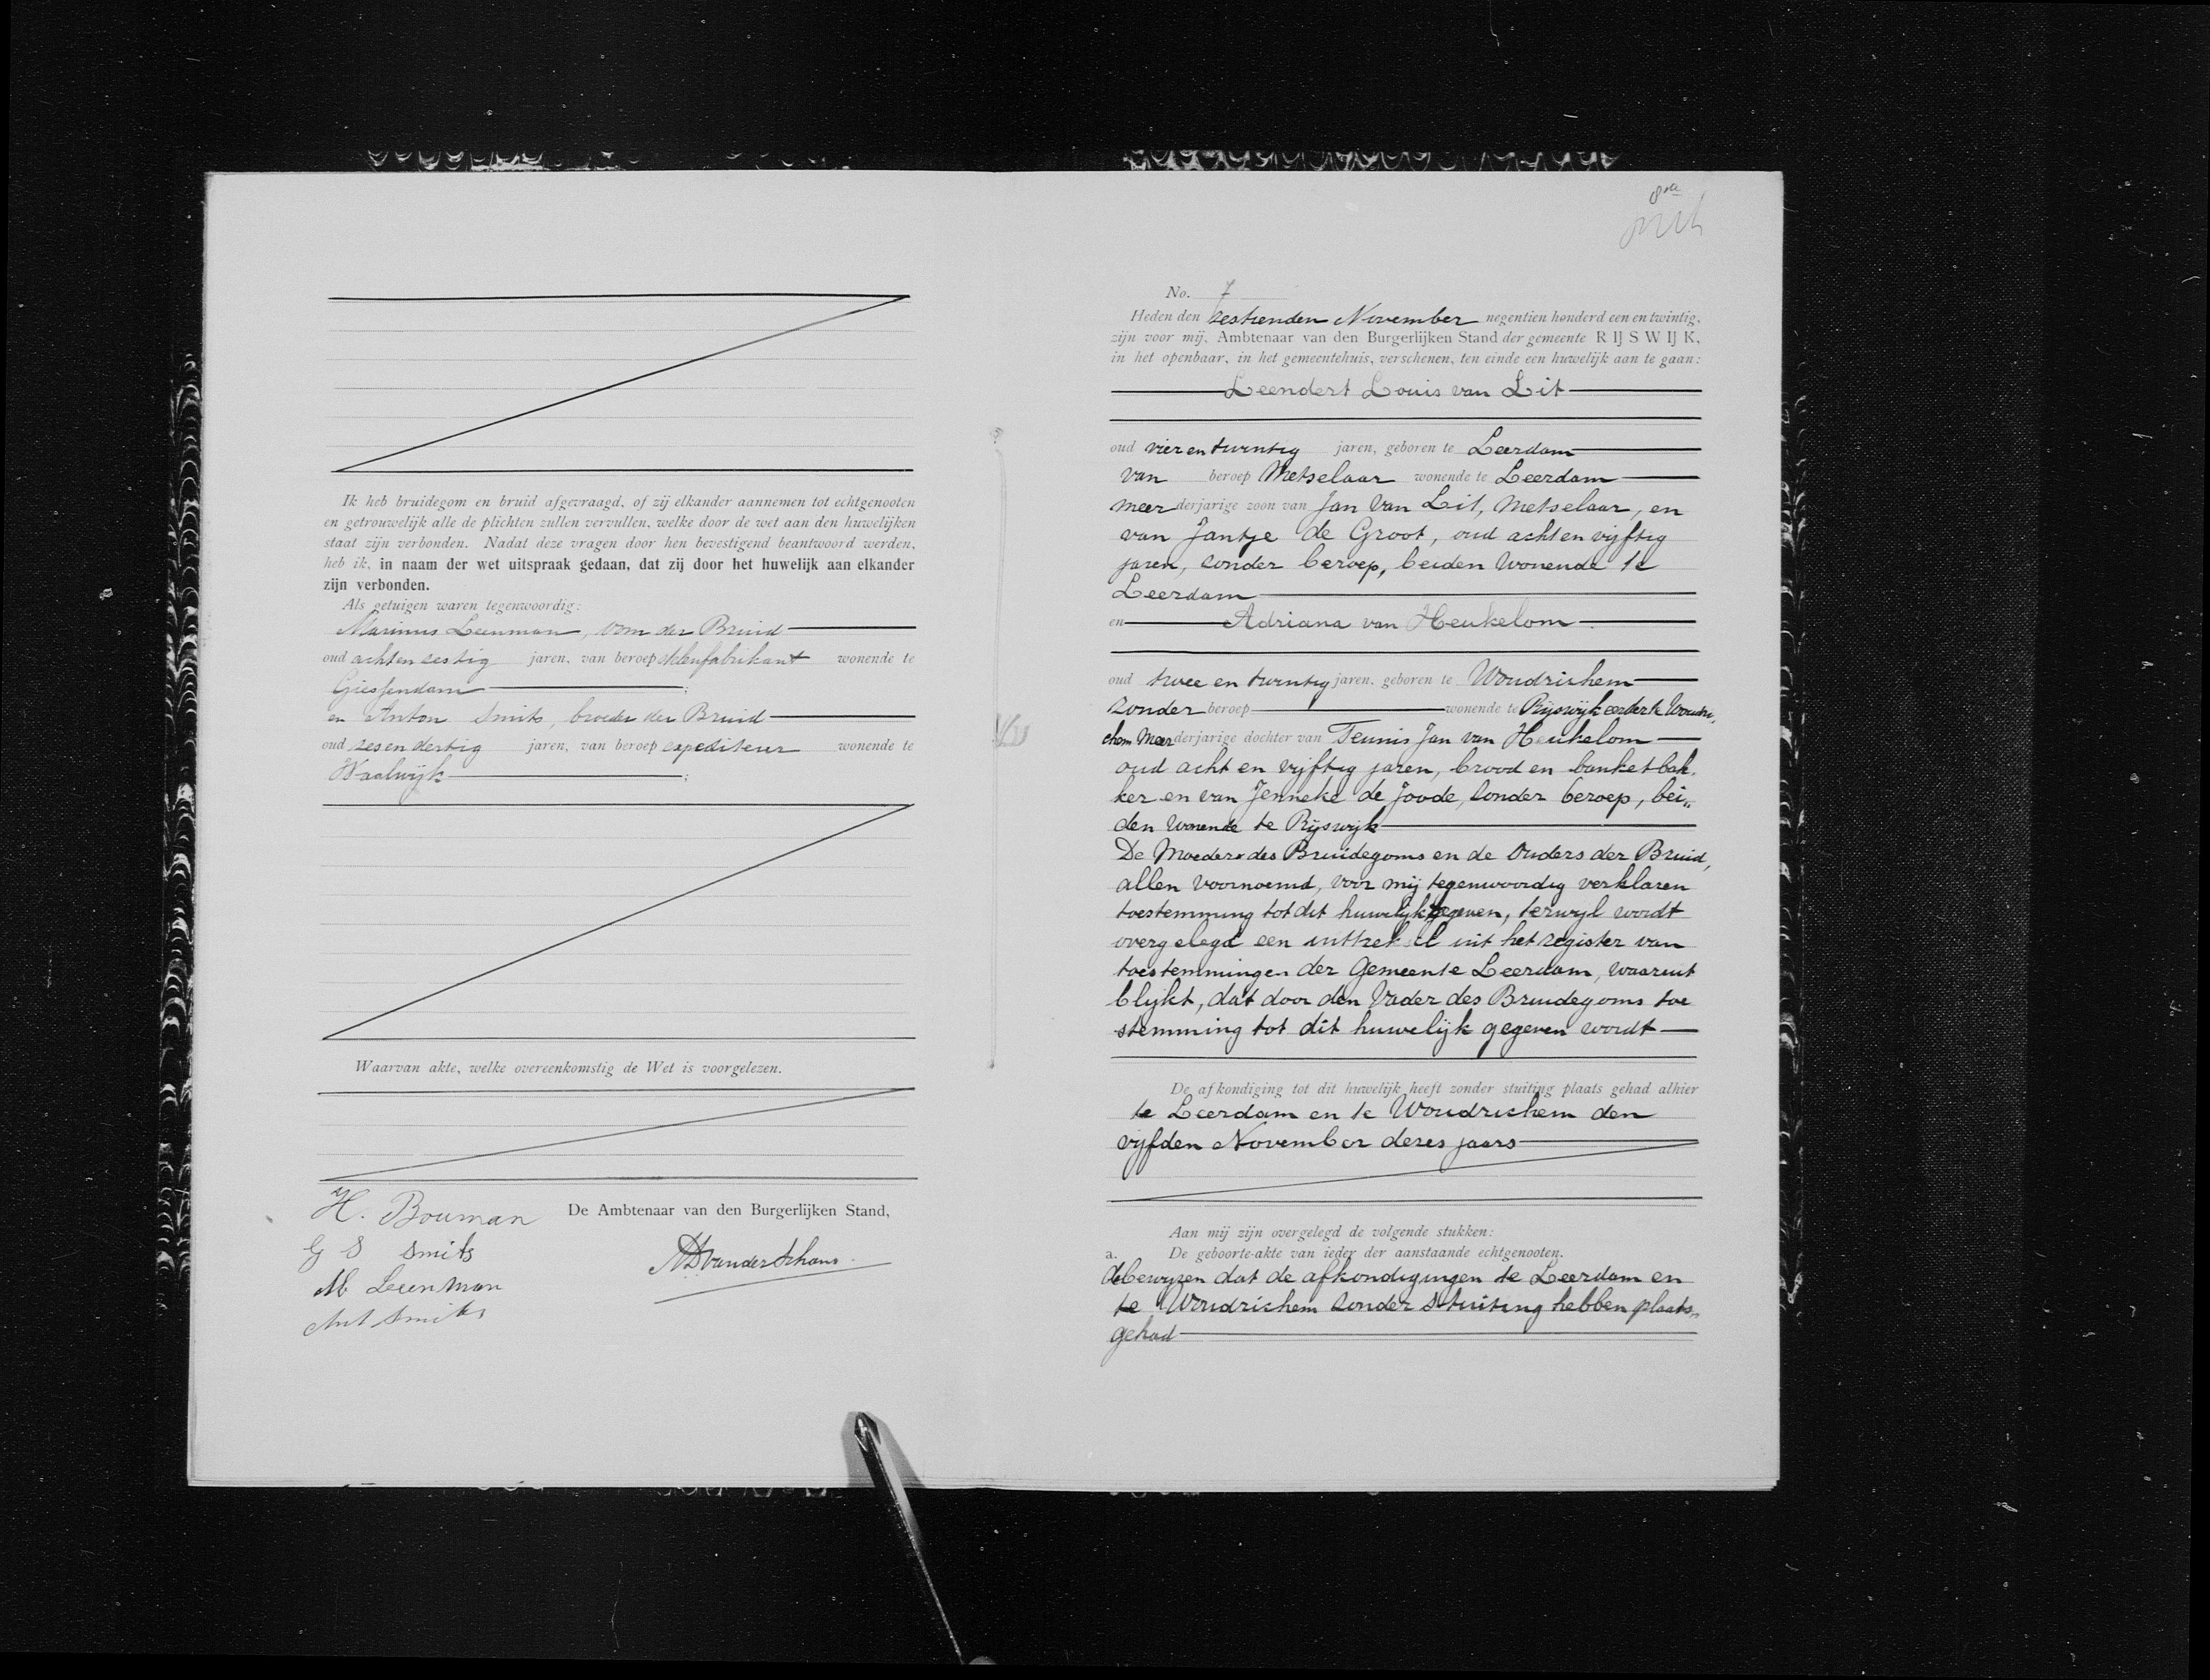 Ik heb bruidegom en bruid afgevraagd, of zij elkander aannemen tot echtgenooten
en getrouwelijk alle de plichten zullen vervullen, welke door de wet aan den huwelijken
staat zijn verbonden. Nadat deze vragen door hen bevestigend beantwoord werden,
heb ik, in naam der wet uitspraak gedaan, dat zij door het huwelijk aan elkander
zijn verbonden.
Als getuigen waren tegenwoordig:
Marinus Leenman, oom der Bruid
oud acht en zestig jaren, van beroep wonende te
Giessendam ;
en Anton Smits, broeder der Bruid
oud zes en dertig jaren, van beroep expediteur wonende te
Waalwijk ;
Waarvan akte, welke overeenkomstig de Wet is voorgelezen.
H. Bouman De Ambtenaar van den Burgerlijken Stand,
G S Smits
vanderSchans
M Leenman
Ant Smits
8ste
No. 7
Heden den zestienden November negentien honderd een en twintig,
zijn voor mij, Ambtenaar van den Burgerlijken Stand der gemeente RIJSWIJK,
in het openbaar, in het gemeentehuis, verschenen, ten einde een huwelijk aan te gaan:
Leendert Louis van Lit
oud vier en twintig jaren, geboren te Leerdam
van beroep Metselaar wonende te Leerdam
meerderjarige zoon van Jan van Lit, Metselaar, en
van Jantje de Groot, oud acht en vijftig
jaren, zonder beroep, beiden wonende te
Leerdam
en Adriana van Heukelom
oud twee en twintig jaren, geboren te Woudrichem
zonder beroep wonende te Rijswijk eerder te Woudri„
chem Meerderjarige dochter van Teunis Jan van Heukelom
oud acht en vijftig jaren, brood en banketbak„
ker en van Jenneke de Joode, zonder beroep, bei„
den wonende te Rijswijk
De Moeder des Bruidegoms en de Ouders der Bruid,
allen voornoemd, voor mij tegenwoordig verklaren
toestemming tot dit huwelijk te geven, terwijl wordt
overgelegd een uittreksel uit het register van
toestemmingen der Gemeente Leerdam, waaruit
blijkt, dat door den Vader des Bruidegoms toe
stemming tot dit huwelijk gegeven wordt
De afkondiging tot dit huwelijk heeft zonder stuiting plaats gehad alhier
te Leerdam en te Woudrichem den
vijfden November dezes jaars
Aan mij zijn overgelegd de volgende stukken:
a. De geboorte-akte van ieder der aanstaande echtgenooten.
de bewijzen dat de afkondigingen te Leerdam en
te Woudrichem zonder stuiting hebben plaats„
gehad